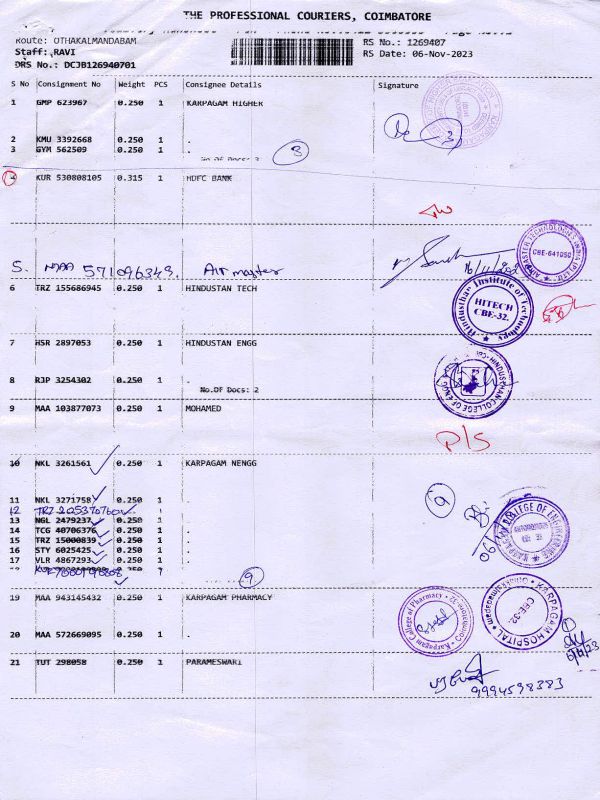 THE PROFESSIONAL COURIERS, COIMBATORE
Route: OTHAKALMANDABAM
RS No.: 1269407
Staff: RAVI
RS Date: 06-Nov-2023
DRS No.: DCJB126940701
S No Consignment No Weight PCS Consignee Details Signature
1 GMP 623967 0.250 1 KARPAGAM HIGHER
2 KMU 3392668 0.250 1 .
3 GYM 562509 0.250 1 .
No.Of Docs: 3 3
4 KUR 530808105 0.315 1 HDFC BANK
5. MAA 571096349. Air master
AIRMASTER TECHNOLOGIES INDIA (P) LTD
CBE-641050
6 TRZ 155686945 0.250 1 HINDUSTAN TECH
Hindusthan Institute of Technology
HITECH
CBE-32.
7 HSR 2897053 0.250 1 HINDUSTAN ENGG
8 RJP 3254302 0.250 1 .
No.Of Docs: 2
9 MAA 103877073 0.250 1 MOHAMED
P/S
10 NKL 3261561 0.250 1 KARPAGAM NENGG
11 NKL 3271758 0.250 1 .
12 TRZ 205370760
13 NGL 2479237 0.250 1 .
14 TCG 40706376 0.250 1 .
15 TRZ 15000839 0.250 1 .
16 STY 6025425 0.250 1 .
17 VLR 4867293 0.250 1 .
9
9
19 MAA 943145432 0.250 1 KARPAGAM PHARMACY
Karpagam College of Pharmacy
Coimbatore-32
KARPAGAM HOSPITAL
CBE-32
20 MAA 572669095 0.250 1 .
21 TUT 298058 0.250 1 PARAMESWARI
9994598383